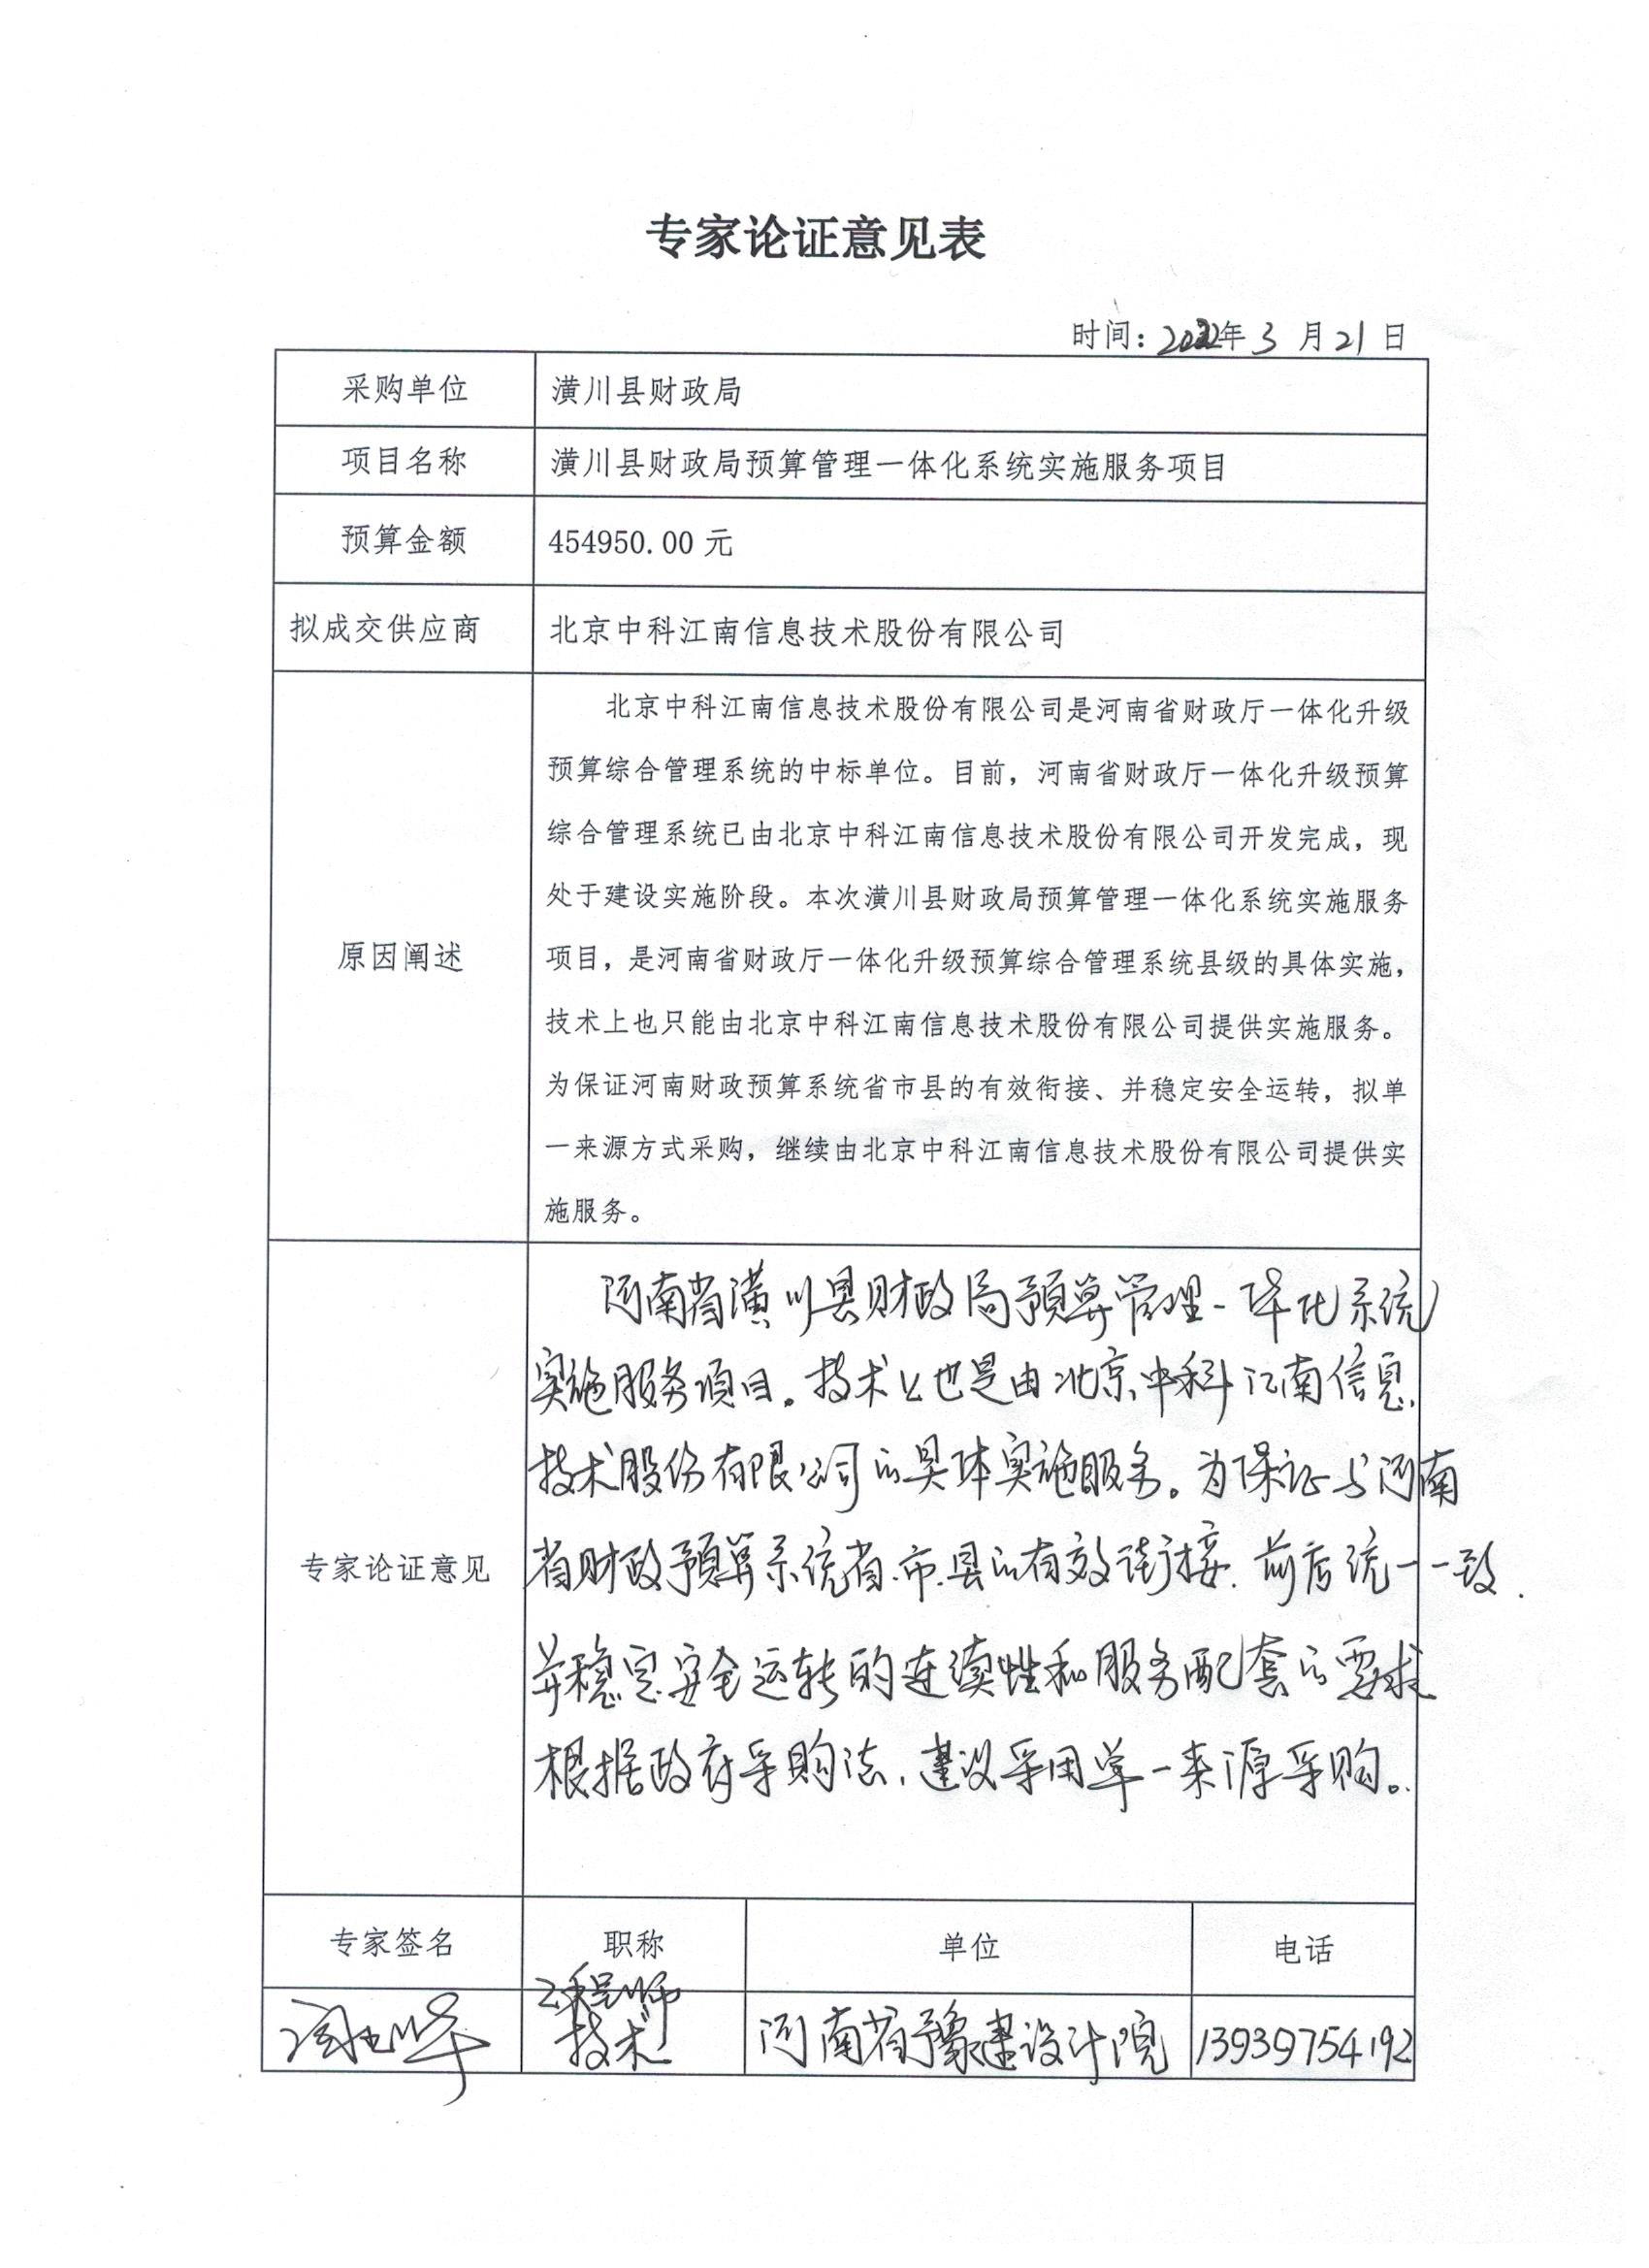 专家论证意见表
时间：2022年3月21日
采购单位 潢川县财政局
项目名称 潢川县财政局预算管理一体化系统实施服务项目
预算金额 454950.00元
拟成交供应商 北京中科江南信息技术股份有限公司
原因阐述
北京中科江南信息技术股份有限公司是河南省财政厅一体化升级
预算综合管理系统的中标单位。目前，河南省财政厅一体化升级预算
综合管理系统已由北京中科江南信息技术股份有限公司开发完成，现
处于建设实施阶段。本次潢川县财政局预算管理一体化系统实施服务
项目，是河南省财政厅一体化升级预算综合管理系统县级的具体实施，
技术上也只能由北京中科江南信息技术股份有限公司提供实施服务。
为保证河南财政预算系统省市县的有效衔接、并稳定安全运转，拟单
一来源方式采购，继续由北京中科江南信息技术股份有限公司提供实
施服务。
专家论证意见
河南省潢川县财政局预算管理一体化系统
实施服务项目。技术上也是由北京中科江南信息
技术股份有限公司的具体实施服务。为保证与河南
省财政预算系统省.市.县的有效衔接.前后统一一致.
并稳定安全运转的连续性和服务配套的要求
根据政府采购法，建议采用单一来源采购。
专家签名 职称 单位 电话
工程师
技术 河南省豫建设计院 13939754192